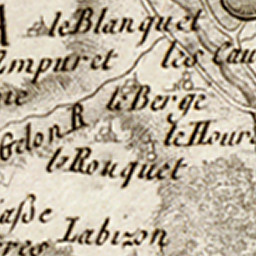 A le Blanquet
Ampuret les Cau
ne
le Berge
Gelon R
le Hour
le Rouquet
aße
Labizon
res